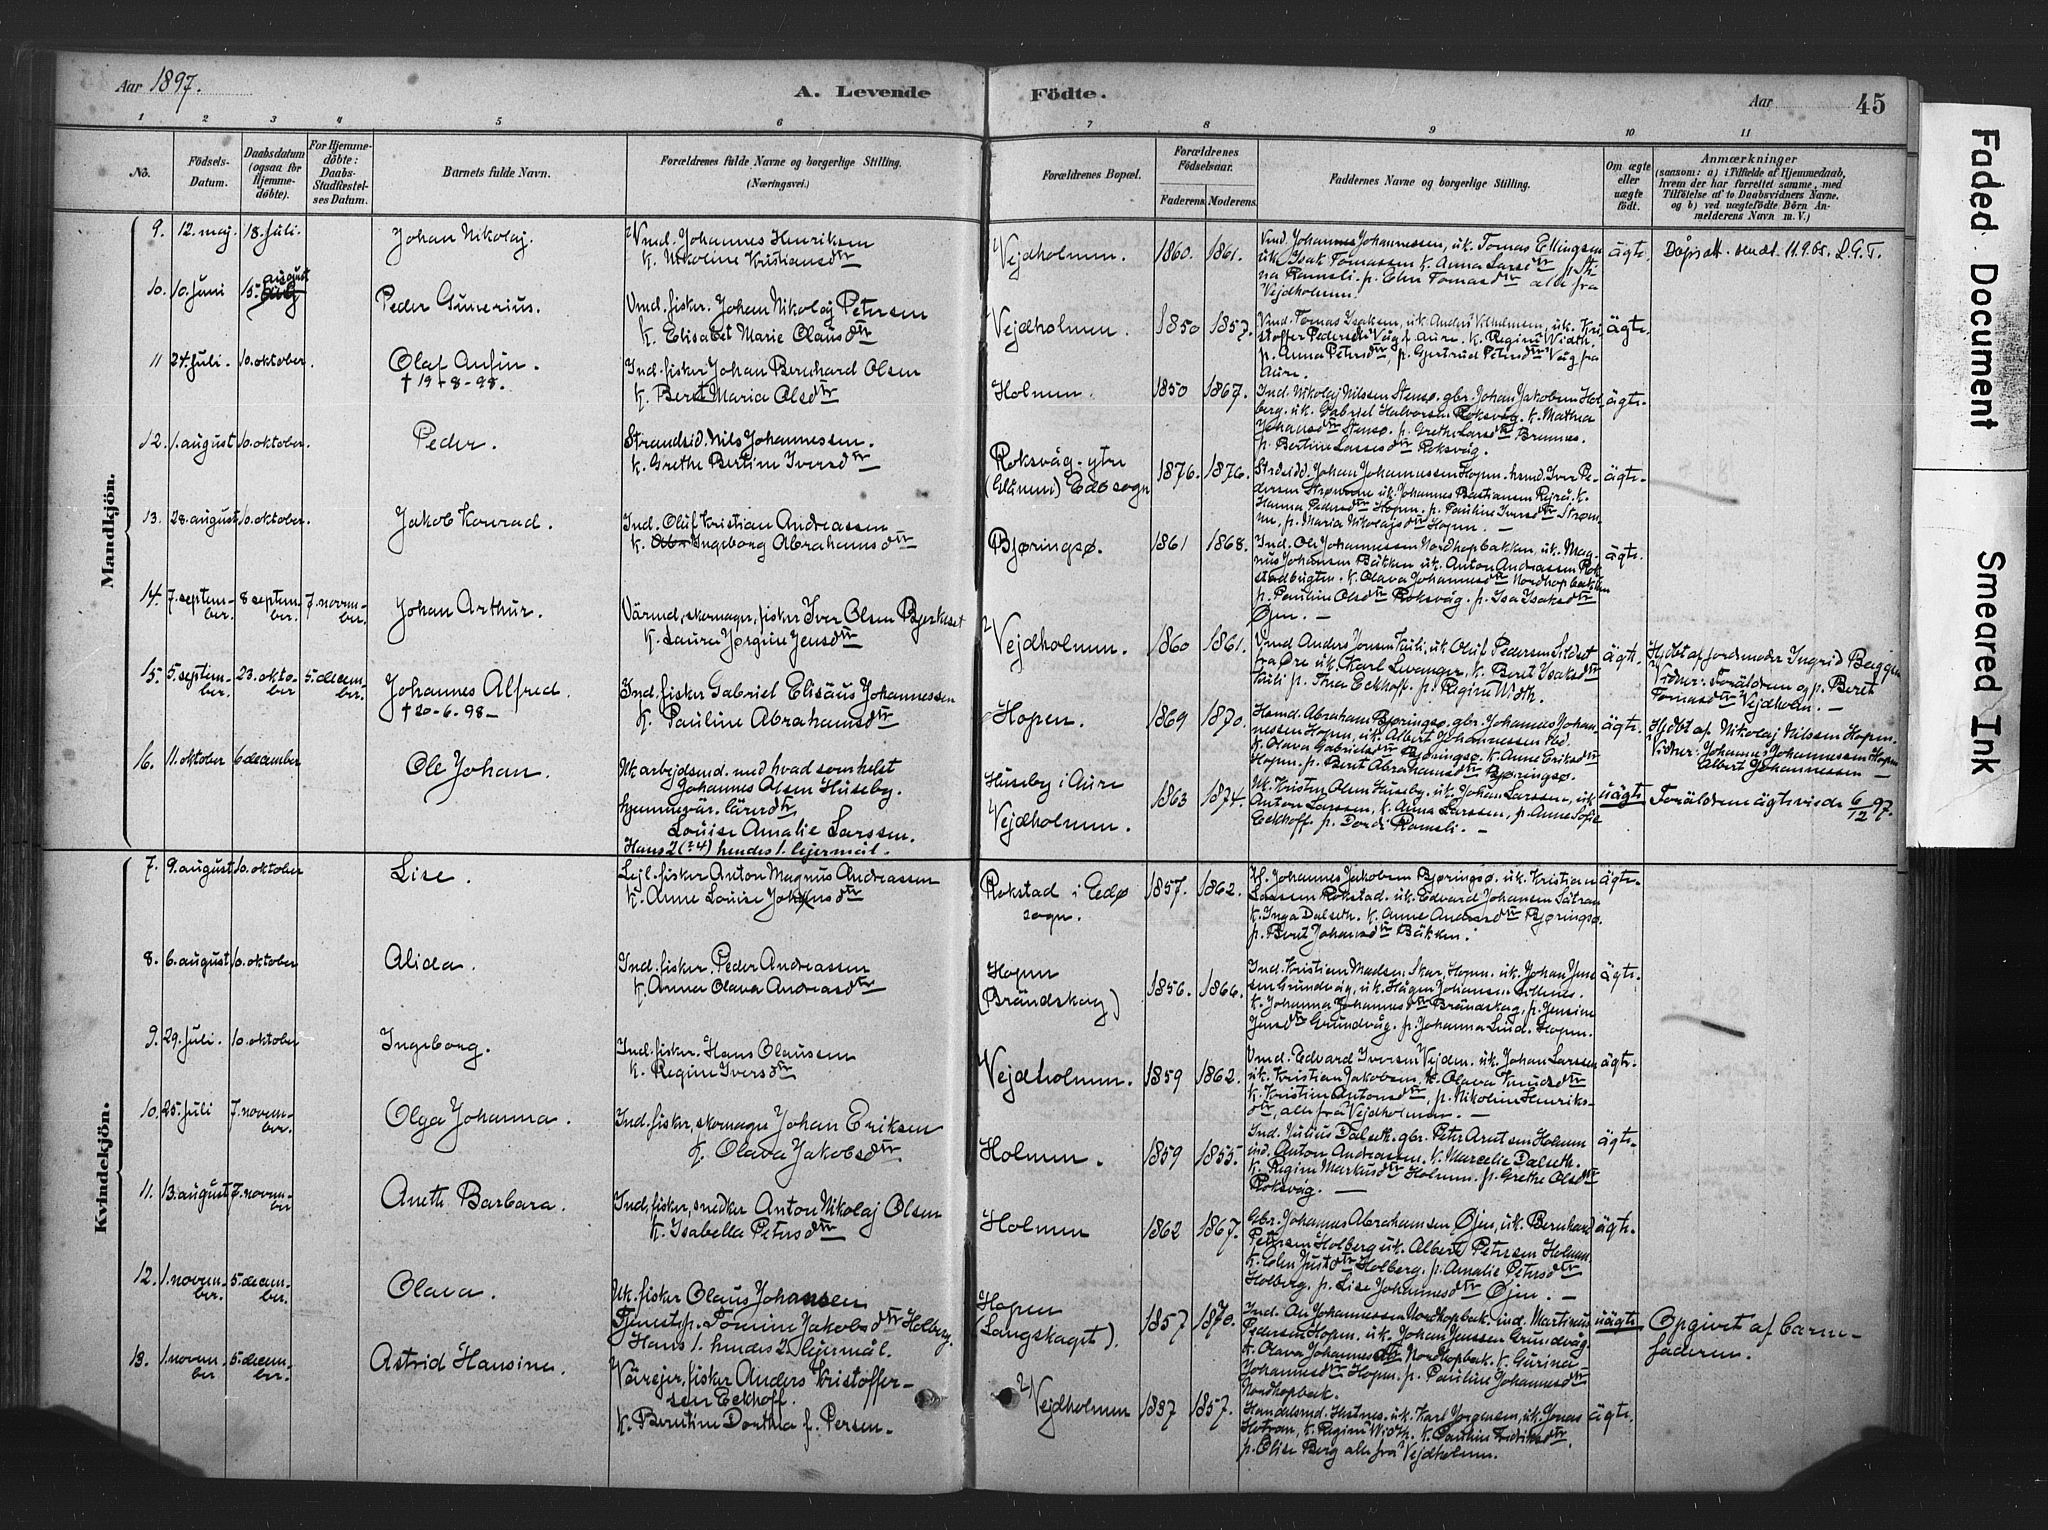 Aar 1897.
A. Levende
Födte.
Aar
45
1 2 3 4 5 6 7 8 9 10 11
No.
Födsels-
Datum.
Daabsdatum
(ogsaa for
Hjemme-
döbte).
For Hjemme-
döbte:
Daabs-
Stadfæstel-
ses Datum.
Barnets fulde Navn.
Forældrenes fulde Navne og borgerlige Stilling.
(Næringsvei.)
Forældrenes Bopæl.
Forældrenes
Födselsaar.
Faderens. Moderens.
Faddernes Navne og borgerlige Stilling.
Om ægte
eller
uægte
födt.
Anmærkninger
(saasom: a) i Tilfælde af Hjemmedaab,
hvem der har forrettet samme, med
Tilföielse af to Daabsvidners Navne.
og b) ved uægtefödte Börn An-
melderens Navn m. V.)
Mandkjön.
9. 12. maj. 18. juli. Johan Nikolaj.
Vmd. Johannes Henriksen
k. Nikoline Kristiansdtr
Vejdholmen. 1860. 1861.
Vmd. Johannes Johannessen, uk. Tomas Ellingsen
uk. Isak Tomassen k. Anna Larsdtr
na Ramsli. p. Elen Tomasdtr alle fra
Vejdholmen.
ägte. Dåpsatt. sendt 11.9.65. L.G.T.
10. 10. juni 15. august
Peder Gunerius.
Vmd. fisker. Johan Nikolaj Petersen
k. Elisabet Marie Olausdtr
Vejdholmen. 1850 1857.
Vmd. Tomas Isaksen, uk. André Vilhelmsen, uk. Kri-
stoffer Pedersen Våg f. Aure. k. Regine Width.
p. Anna Petersdtr, p. Gjertrud Petersdtr Våg fra
Aure.
ägte.
11 24. juli. 10. oktober. Olaf Anfin.
† 19-8-98.
Ind. fisker Johan Bernhard Olsen
k. Beret Maria Olsdtr
Holmen. 1850 1867.
Ind. Nikolaj Nilsen Stensø. gbr. Johan Jakobsen Hol-
berg. uk. Gabriel Halvorsen Roksvåg. k. Mathea
Johansdtr Stensø. p. Grethe Larsdtr Bremnes.
p. Bertine Larsdtr Roksvåg.
ägte.
12. 1. august 10. oktober. Peder.
Strandsid. Nils Johannessen.
k. Grethe Bertine Iversdtr
Roksvåg. ytre
(Glumen) Edö sogn
1876. 1876.
Strsidd. Johan Johannessen Hopen. hsmd. Iver Pe-
dersen Strømme uk. Johannes Bastiansen Rejrå. k.
Hanna Pedersdtr Hopen. p. Pauline Iversdtr Strøm-
me, p. Maria Nikolajsdtr Hopen.
ägte.
13. 28. august 10. oktober. Jakob Konrad.
Ind. Oluf Kristian Andreassen
k. Ingeborg Abrahamsdtr
Bjøringsø. 1861 1868.
Ind. Ole Johannessen Nordhopbakken, uk. Mag-
nus Johansen Bakken uk. Anton Andreassen Rok-
stadbugten. k. Olava Johannesdtr Nordhopbakken
p. Pauline Olsdtr Roksvåg. p. Isa Isaksdtr
Øjen.
ägte.
14. 7. septem-
ber. 8 septem-
ber. 7. novem-
ber. Johan Arthur.
Värmd, skomager, fisker Iver Olsen Bjerkeset
k. Laura Jørgine Jensdtr
Vejdholmen. 1860 1861.
Vmd Anders Jensen Kuli, uk Oluf Pedersen Sildset
fra Øre uk. Karl Levanger. k. Beret Isaksdtr
Kuli p. Ina Eckhoff. p. Regine Width.
ägte. Hjdbt af jordmoder Ingrid Berggren
Vidner: Forældrene og p. Beret
Tomasdtr Vejdholm.
15. 5. septem-
ber. 23. okto-
ber 5. decem-
ber. Johannes Alfred.
† 20-6-98-
Ind. fisker Gabriel Elisäus Johannessen
k. Pauline Abrahamsdtr
Hopen. 1869 1870.
Hsmd. Abraham Bjøringsø. gbr. Johannes Johan-
nessen Hopen, uk. Albert Johannessen ibd.
k. Olava Gabrielsdtr Bjøringsø. k. Anne Eriksdtr
Hopen. p. Beret Abrahamsdtr Bjøringsø.
ägte. Hjdbt af Nikolaj Nilssen Hopen.
Vidner: Johannes Johannessen Hopen
Albert Johannessen
16. 11. oktober 6 december Ole Johan.
Uk. arbejdsmd. med hvad somhelst
Johannes Olsen Huseby.
hjemmevär. lärerdtr
Louise Amalie Larssen.
Hans 2 (:4) hendes 1. lejermål.
Huseby i Aure
Vejdholmen.
1863 1874.
Uk. Krister Olsen Huseby. uk. Johan Larssen, uk
Anton Larssen, k. Anna Larssen, p. Anne Sofie
Eckhoff. p. Dordi Ramsli.
uägte Forældrene ägteviede 6/12 97.
Kvindekjön.
7. 9. august 10. oktober Lise.
Lejl. fisker Anton Magnus Andreassen
k. Anne Louise Johansdtr
Rokstad i Edö
sogn. 1857. 1862.
Kf. Johannes Jakobsen Bjøringsø. uk. Kristian
Larssen Rokstad. uk. Edvard Johansen Sätran
k. Inga Dalseth. k. Anne Andersdtr Bjøringsø.
p. Beret Johansdtr Bäkken.
ägte.
8. 6. august 10. oktober Alida.
Ind. fisker. Peder Andreassen
k. Anna Olava Andreasdtr
Hopen
(Brändskag) 1856. 1866.
Ind. Kristian Madsen Skar, Hopen. uk. Johan Jen-
sen Grundvåg, uk. Hågen Johansen Sillenes.
k. Johanna Johannesdtr Brändskag. p. Jensine
Jensdtr Grundvåg. p. Johanna Lind. Hopen.
ägte.
9. 29. juli. 10. oktober Ingeborg.
Ind. fisker. Hans Olaussen
k. Regine Iversdtr
Vejdholmen. 1859 1862.
Vmd. Edvard Iversen Vejden. uk. Johan Larssen
uk. Kristian Jakobsen. k. Olava Knudsdtr
k. Kristine Antonsdtr, p. Nikoline Henriks-
dtr, alle fra Vejdholmen.
ägte.
10. 25. juli 7. novem-
ber. Olga Johanna.
Ind. fisker, skomager Johan Eriksen
k. Olava Jakobsdtr.
Holmen. 1859 1855.
Ind. Julius Dalseth. gbr. Peter Arntsen Holmen
ind. Anton Andreassen. k. Marcelie Dalseth.
k. Regine Markusdtr Holmen. p. Grethe Olsdtr
Roksvåg.
ägte.
11. 13. august 7. novem-
ber Aneth Barbara.
Ind. fisker, snedker Anton Nikolaj Olsen
k. Isabella Petersdtr
Holmen 1862 1867.
Gbr. Johannes Abrahamsen Øjen, uk. Bernhard
Petersen Holberg uk. Albert Petersen Holmen
k. Elen Justsdtr Holberg. p. Amalie Petersdtr
Holberg. p. Lise Johannesdtr Øjen.
ägte.
12. 1. novem-
ber. 5. decem-
ber. Olava.
Uk. fisker Olaus Johansen
Tjenestp. Tomine Jakobsdtr Holberg.
Hans 1. hendes 2. lejermål.
Hopen
(Langskaget). 1857 1870.
Ind. An Johannessen Nordhopbak. ind. Martinus
Pedersen Hopen. uk. Johan Jenssen Grundvåg.
k. Olava Johannesdtr Nordhopbak. k. Gurina
Johannesdtr Hopen. p. Pauline Johannesdtr
Nordhopbak.
uägte Opgivet af barne-
faderen.
13. 1. novem-
ber 5. decem-
ber. Astrid Hansine.
Värejer, fisker Anders Kristoffer-
sen Eckhoff.
k. Berntine Dorthea f. Persen.
Vejdholmen 1837 1857.
Handelsmd. Hestnes. uk. Karl Jørgensen, uk. Jonas
Hotran, k. Regine Width. k. Pauline Fredriksdtr.
p. Elise Berg alle fra Vejdholmen.
ägte.
Faded Document
Smeared Ink